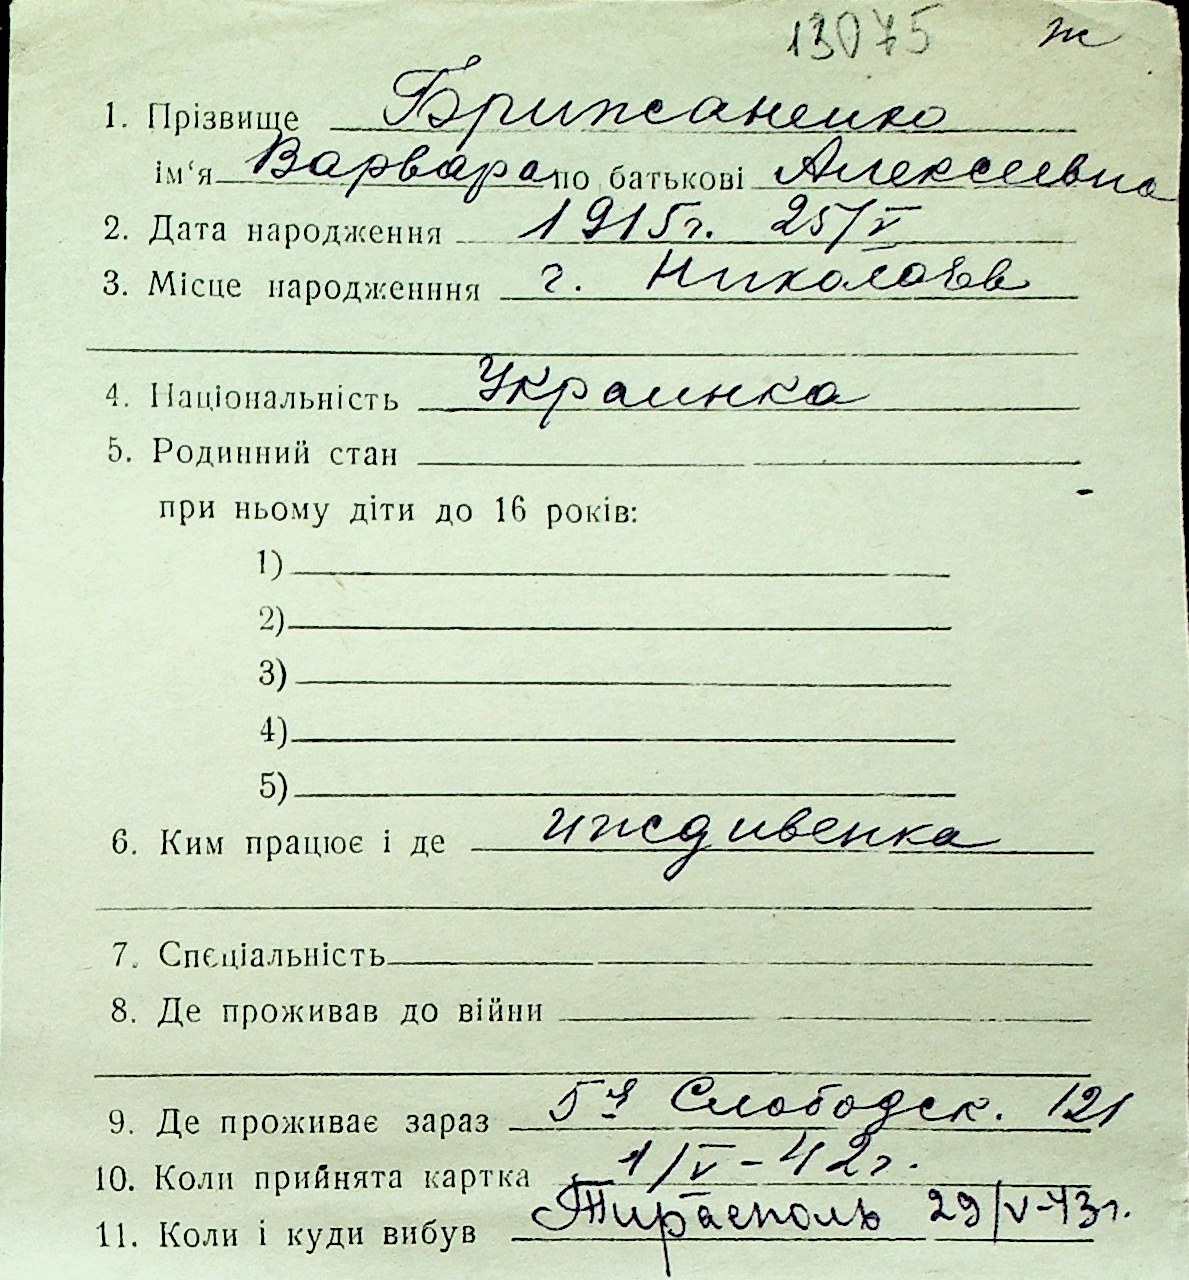 13075 ж
1. Прізвище Брижаненко
ім'я Варвара по батькові Алексеевна
2. Дата народження 1915г. 25/V
3. Місце народженння г. Николаев
4. Національність Украинка
5. Родинний стан
при ньому діти до 16 років:
1)
2)
3)
4)
5)
6. Ким працює і де иждивенка
7. Спеціальність
8. Де проживав до війни
9. Де проживає зараз 5я Слободск. 121
10. Коли прийнята картка 1/V-42г.
11. Коли і куди вибув Тирасполь 29/V-43г.